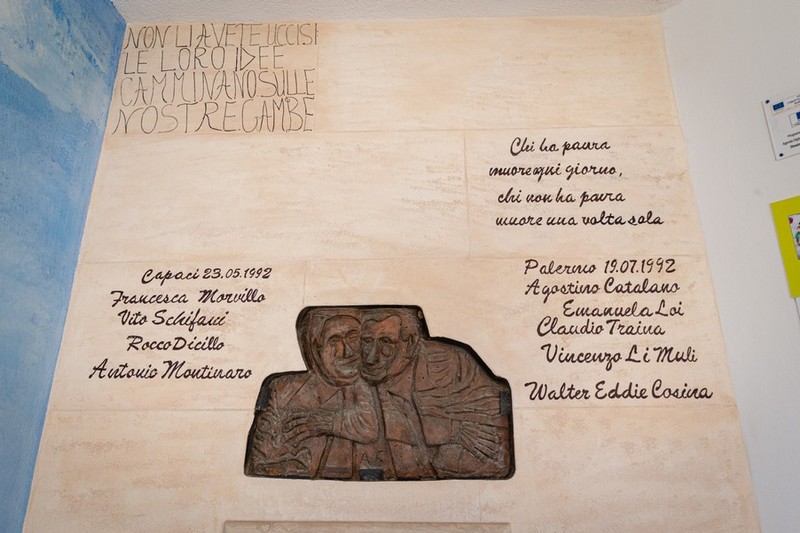 NON LI AVETE UCCISI
LE LORO IDEE
CAMMINANO SULLE
NOSTRE GAMBE
Chi ha paura
muore ogni giorno,
chi non ha paura
muore una volta sola
Capaci 23.05.1992
Francesca Morvillo
Vito Schifani
Rocco Dicillo
Antonio Montinaro
Palermo 19.07.1992
Agostino Catalano
Emanuela Loi
Claudio Traina
Vincenzo Li Muli
Walter Eddie Cosina